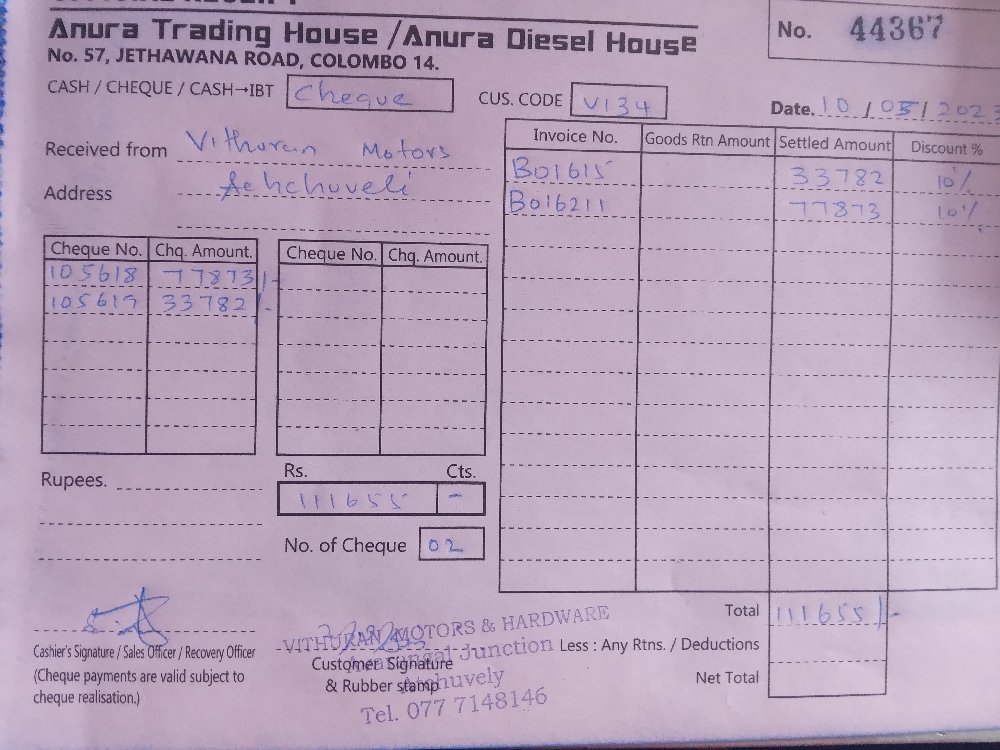 Anura Trading House / Anura Diesel House
No. 57, JETHAWANA ROAD, COLOMBO 14.
No. 44367
CASH / CHEQUE / CASH→IBT Cheque
CUS. CODE V134
Date. 10 / 05 / 2023
Received from Vithuran Motors
Address Achchuveli
Invoice No. Goods Rtn Amount Settled Amount Discount %
B01615 33782 10%
B016211 77873 10%
Cheque No. Chq. Amount. Cheque No. Chq. Amount.
105618 77873/-
105619 33782/-
Rupees.
Rs. Cts.
111655 -
No. of Cheque 02
Total 111655/-
Less : Any Rtns. / Deductions
Net Total
Cashier's Signature / Sales Officer / Recovery Officer
(Cheque payments are valid subject to
cheque realisation.)
Customer Signature
& Rubber stamp
VITHURAN MOTORS & HARDWARE
Junction
Atchuvely
Tel. 077 7148146